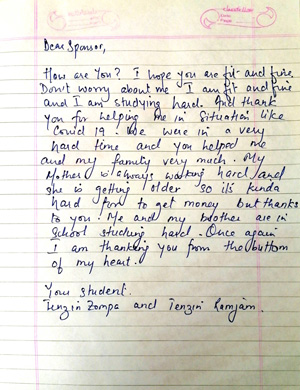 Dear Sponsor,
How are You? I hope you are fit and fine
Don't worry about me I am fit and fine
and I am studying hard. And thank
you for helping me in situation like
Covid 19. We were in a very
hard time and you helped me
and my family very much. My
Mother is always working hard and
she is getting older so it's kinda
hard for to get money but thanks
to you! Me and my brother are in
School studying hard. Once again
I am thanking you from the buttom
of my heart.
Your student.
Tenzin Zompa and Tenzin Ramjam.